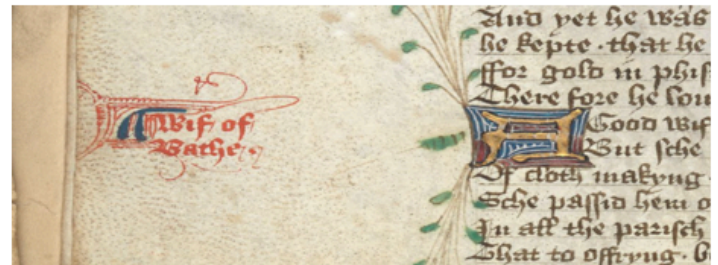 A Wif of
Bathe.
And yet he was
he kepte. that he
ffor gold in phis
There fore he lou
A Good wif
But sche
Of cloth makyng.
Sche passid hem o
In all the parisch
That to offryng. b